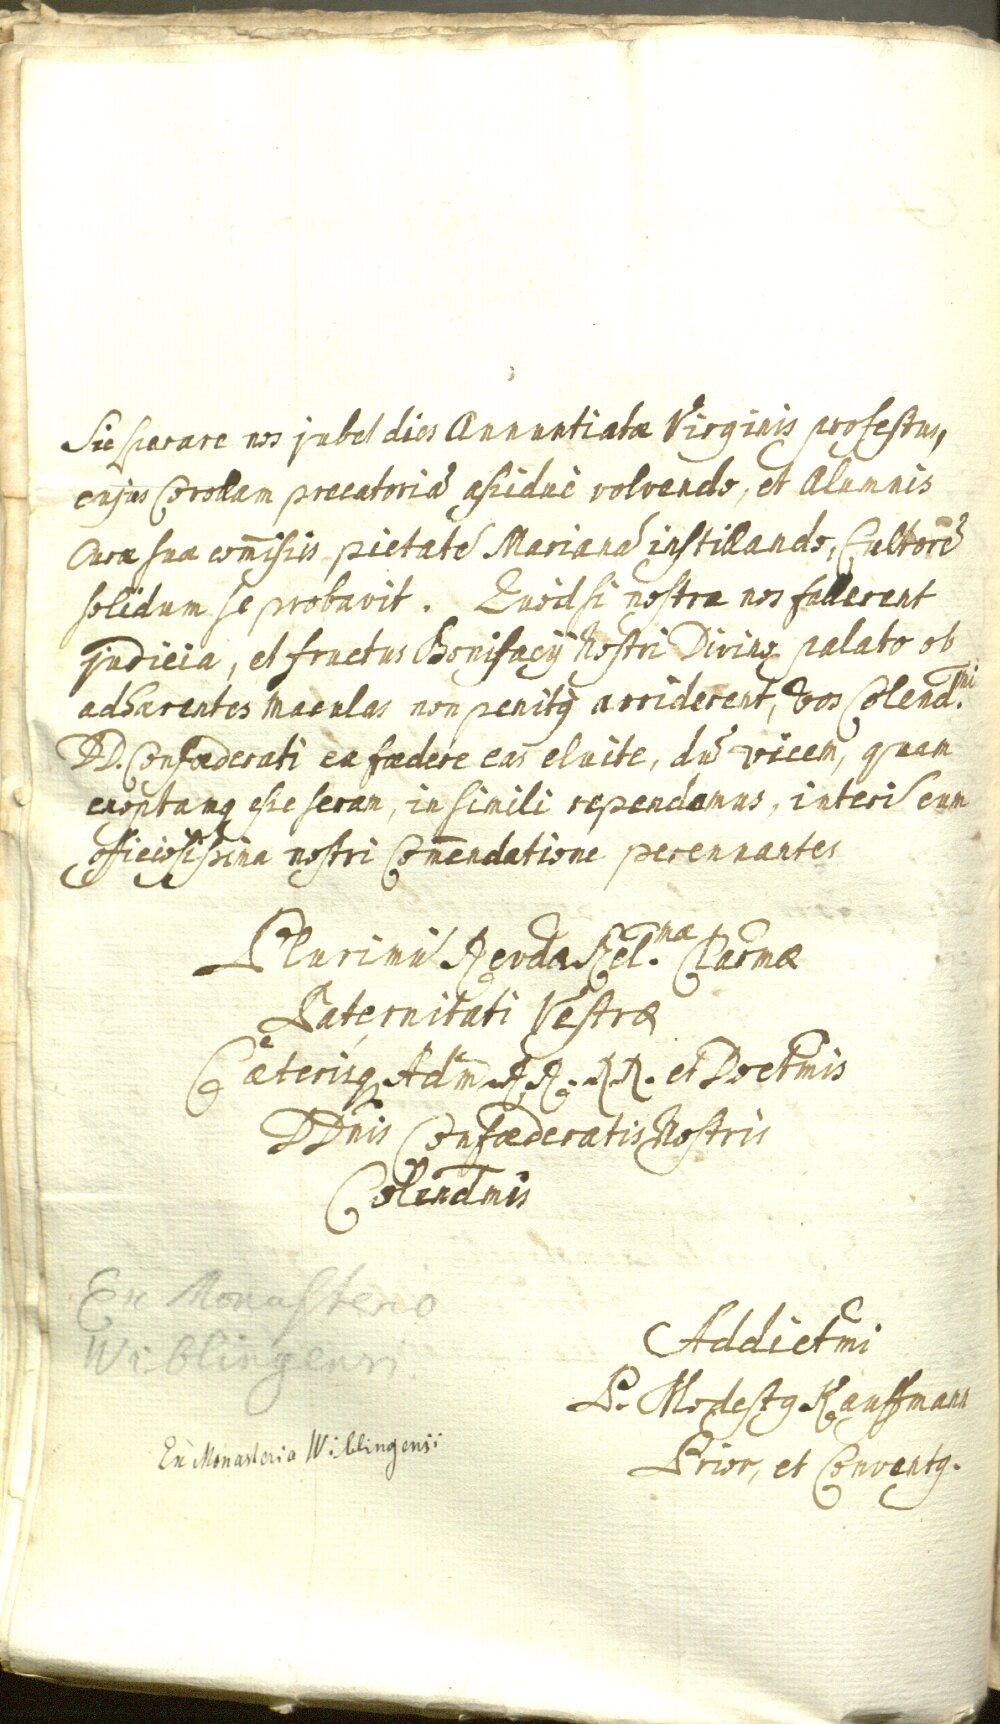 Sic sperare nos jubet dies Annuntiatæ Virginis profestus,
cujus Corollam precatoriã assiduè volvendo, et Alumnis
Curæ suæ com̃issis pietatẽ Marianã instillando, Cultorẽ
solidum se probavit. Quod si nostra nos fallerent
judicia, et fructus Bonifacij Nostri Divinq palato ob
adhærentes maculas non penitq arriderent, Vos Colend.mi
DD. Confœderati ex fœdere eas eluite, dũ vicem, quam
exoptamq esse seram, in simili rependamus, interĩ cum
officiosissima nostri Com̃endatione perennantes
Plurimũ Revdæ Rel.mæ Clarmæ
Paternitati Vestræ
Cæterisq Adm̃ RR. RR. et Doctmis
DDnis Confœderatis Nostris
Colendmis
Ex Monasterio
Wiblingensi
Ex Monasterio Wiblingensi
Addictmi
P. Modestq Kauffmann
Prior, et Conventq.